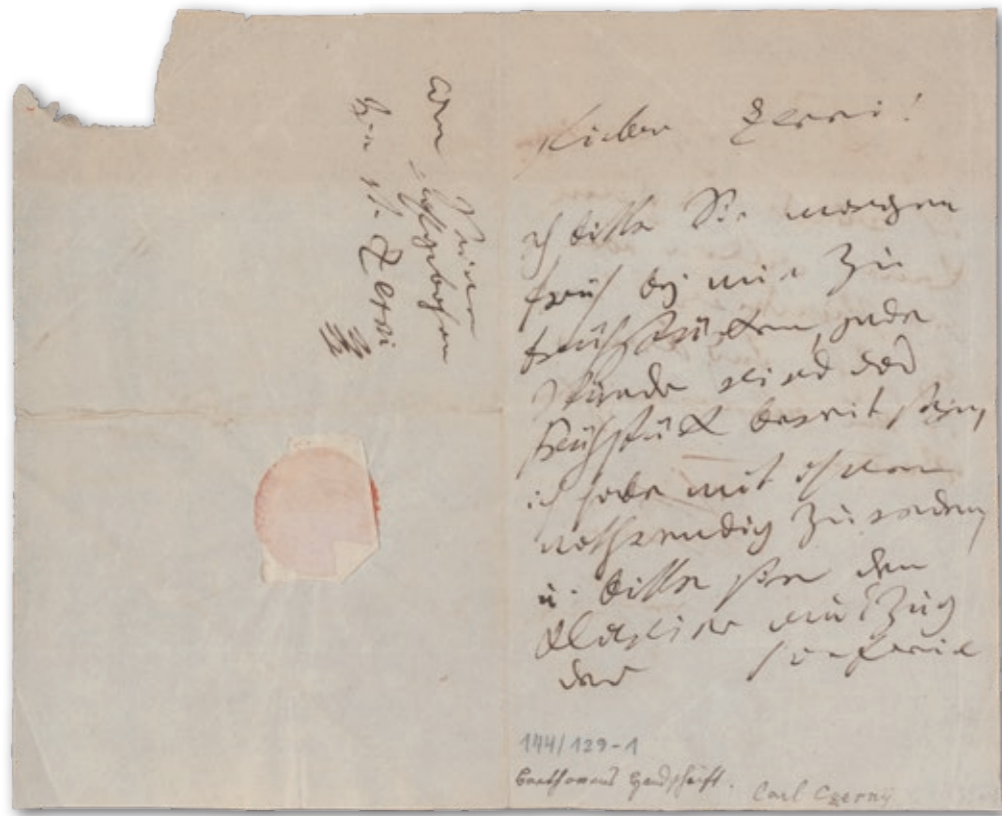 An
Seine
Hochgebohren
v. Zerni
Lieber Zerni!
ich bitte Sie morgen
früh bey mir zu
frühstücken, jede
Stunde wird das
Frühstück bereit seyn,
ich habe mit ihnen
nothwendig zu reden
u. bitte sie den
Klavier auszug
der Sinfonie
144/129-1
Beethovens Handschrift.
Carl Czerny